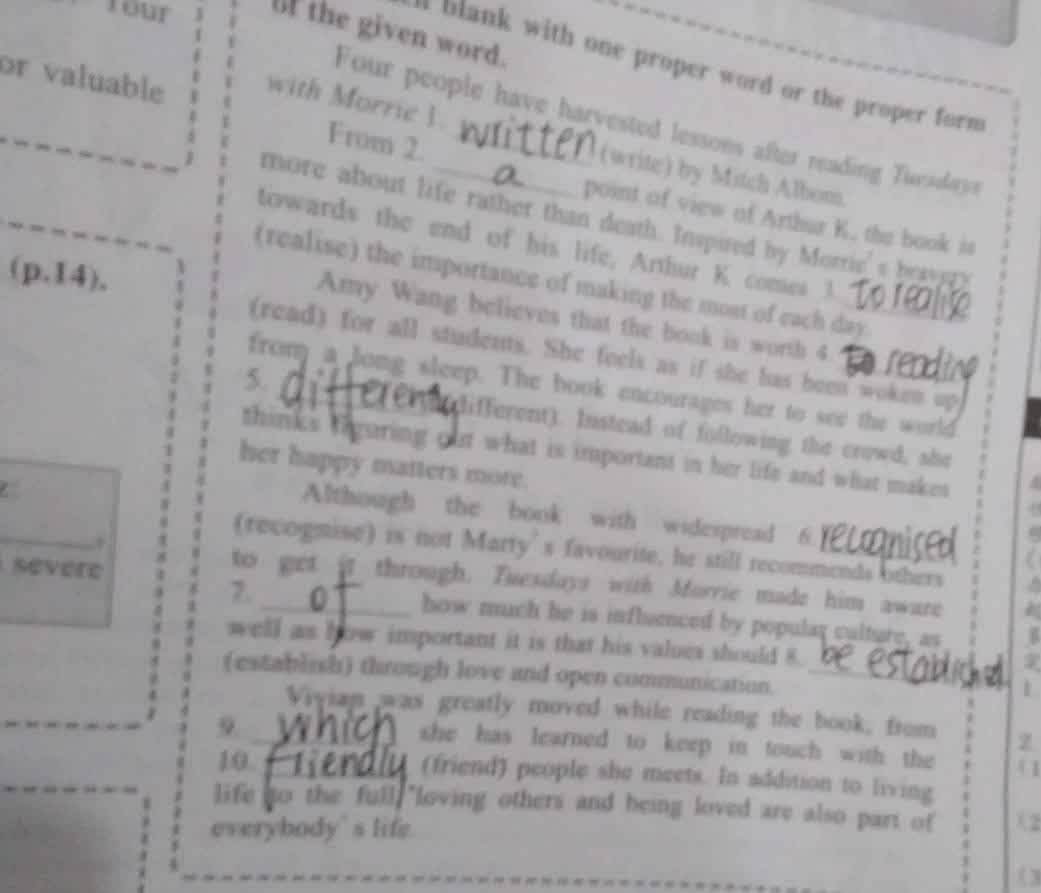 Your
or valuable
(p.14).
severe
blank with one proper word or the proper form
of the given word.
Four people have harvested lessons after reading Tuesdays
with Morrie 1. written (write) by Mitch Albom.
From 2. a point of view of Arthur K, the book is
more about life rather than death. Inspired by Morrie's bravery
towards the end of his life, Arthur K comes 3. to realise
(realise) the importance of making the most of each day.
Amy Wang believes that the book is worth 4. reading
(read) for all students. She feels as if she has been woken up
from a long sleep. The book encourages her to see the world
5. differently (different). Instead of following the crowd, she
thinks figuring out what is important in her life and what makes
her happy matters more.
Although the book with widespread 6. recognised
(recognise) is not Marty's favourite, he still recommends others
to get it through. Tuesdays with Morrie made him aware
7. of how much he is influenced by popular culture, as
well as how important it is that his values should 8. be established
(establish) through love and open communication.
Vivian was greatly moved while reading the book, from
9. which she has learned to keep in touch with the
10. friendly (friend) people she meets. In addition to living
life to the full, loving others and being loved are also part of
everybody's life.